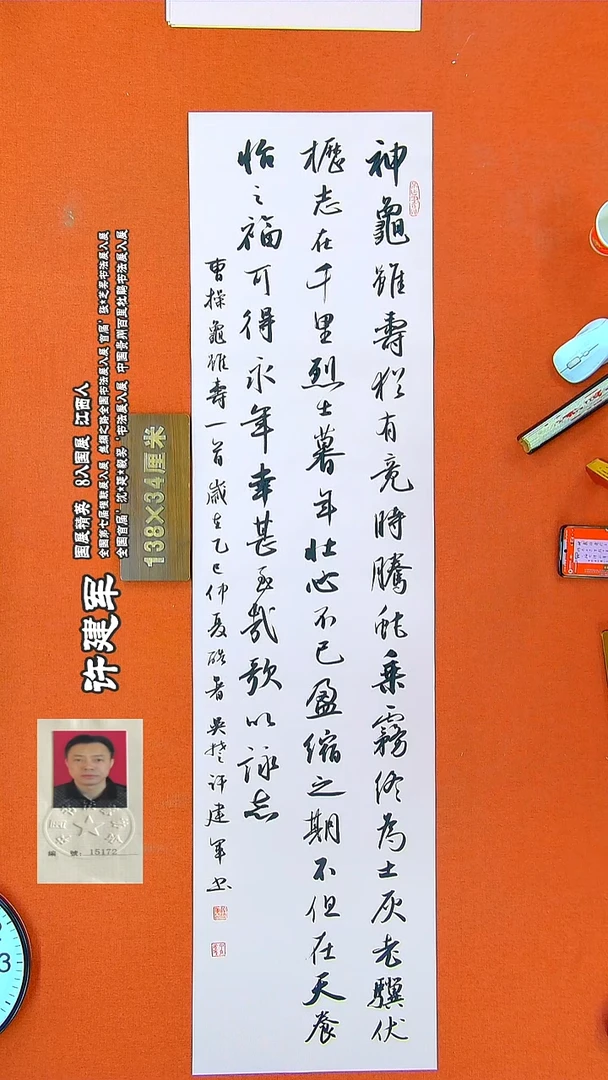 神龜雖壽猶有竟時騰蛇乘霧終為土灰老驥伏
櫪志在千里烈士暮年壯心不已盈縮之期不但在天養
怡之福可得永年幸甚至哉歌以詠志
曹操龜雖壽一首歲在乙巳仲夏酷暑吳楚許建軍书
138×34厘米
许建军
国展精英 8入国展 江西人
全国第七届楹联展入展 丝绸之路全国书法展入展 首届'张*芝奖书法展入展
全国首届'沈*延*毅奖'书法展入展 中国贵州百里杜鹃书法展入展
編 號:15172
3